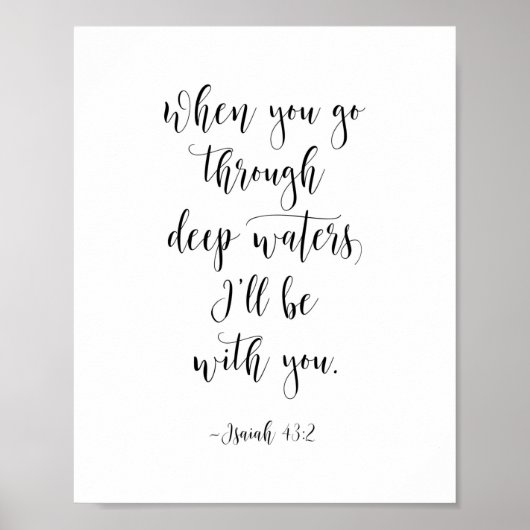 When you go
through
deep waters,
I'll be
with you.
~Isaiah 43:2